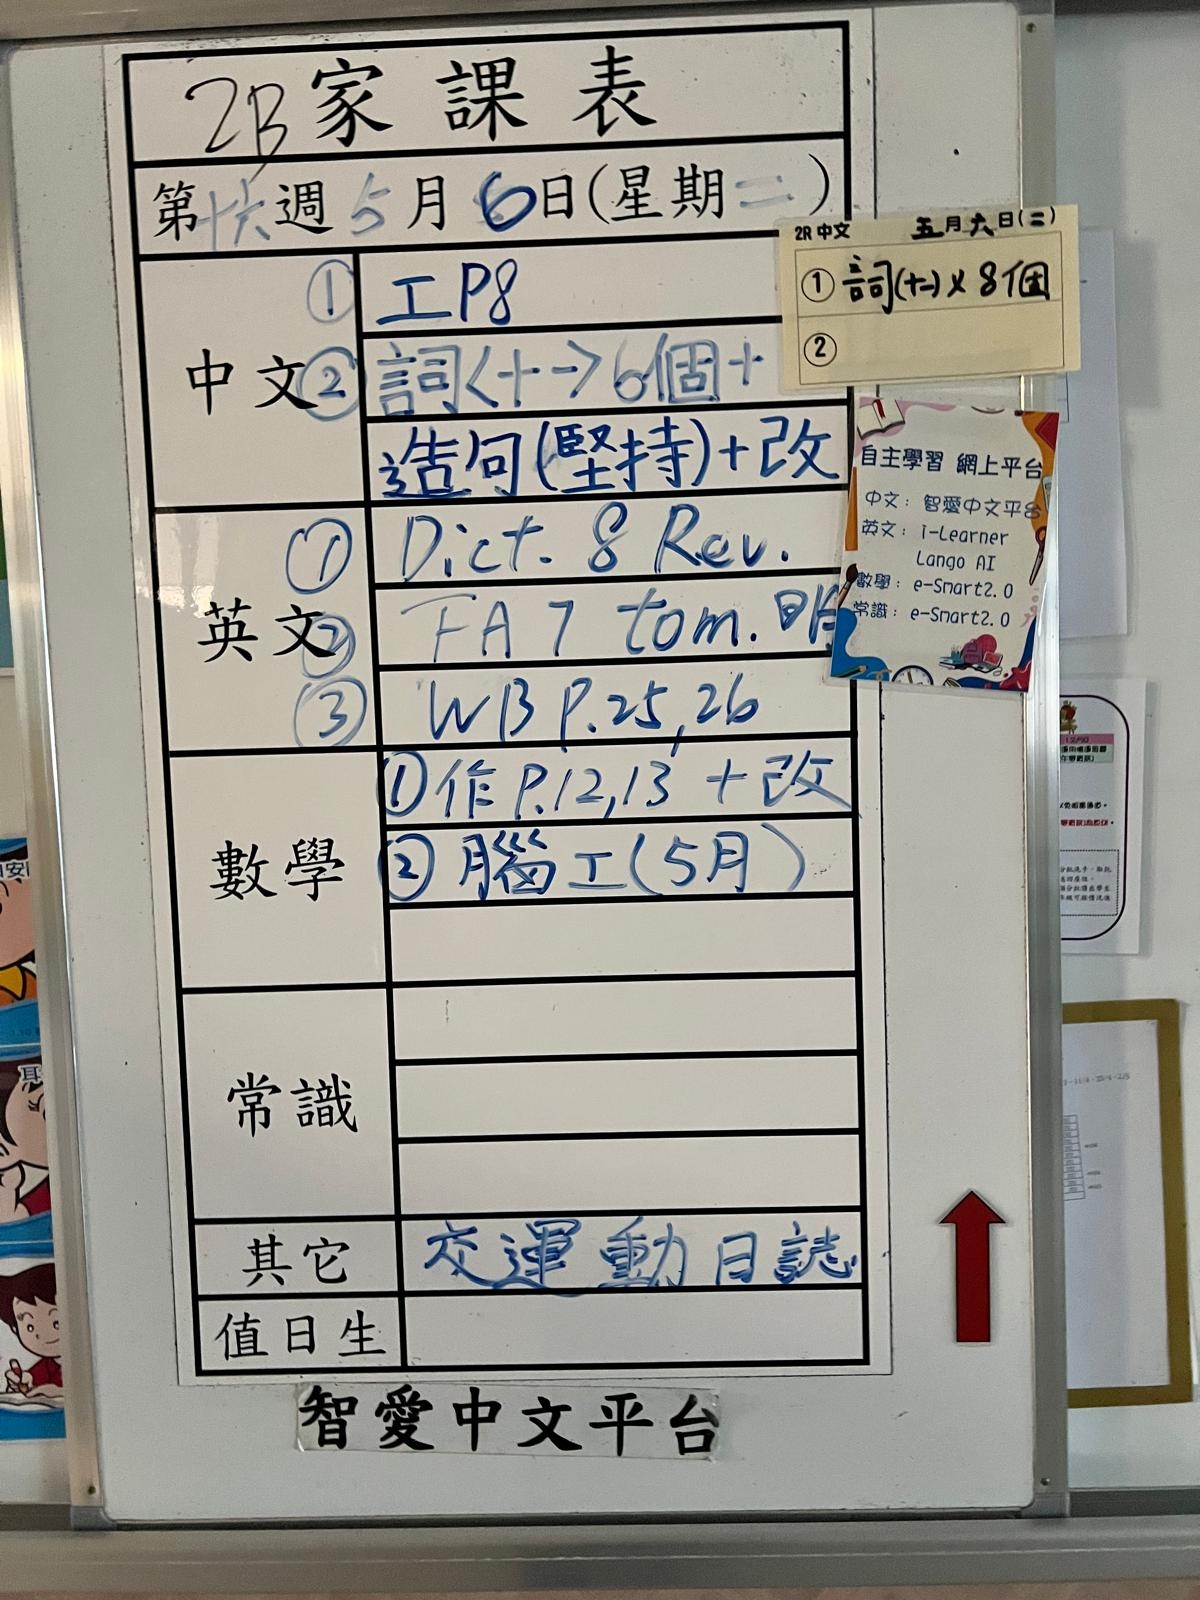 2B 家課表
第十六週 5月6日(星期二)
中文
① 工P8
② 詞<十一>6個+
造句(堅持)+改
英文
① Dict. 8 Rev.
② FA 7 tom. 明
③ WB P.25,26
數學
① 作P.12,13 + 改
② 腦工(5月)
常識
其它
交運動日誌
值日生
智愛中文平台
2R 中文 五月六日(二)
① 詞(十二) x 8個
②
自主學習 網上平台
中文：智愛中文平台
英文：i-Learner
Lango AI
數學：e-Smart2.0
常識：e-Smart2.0